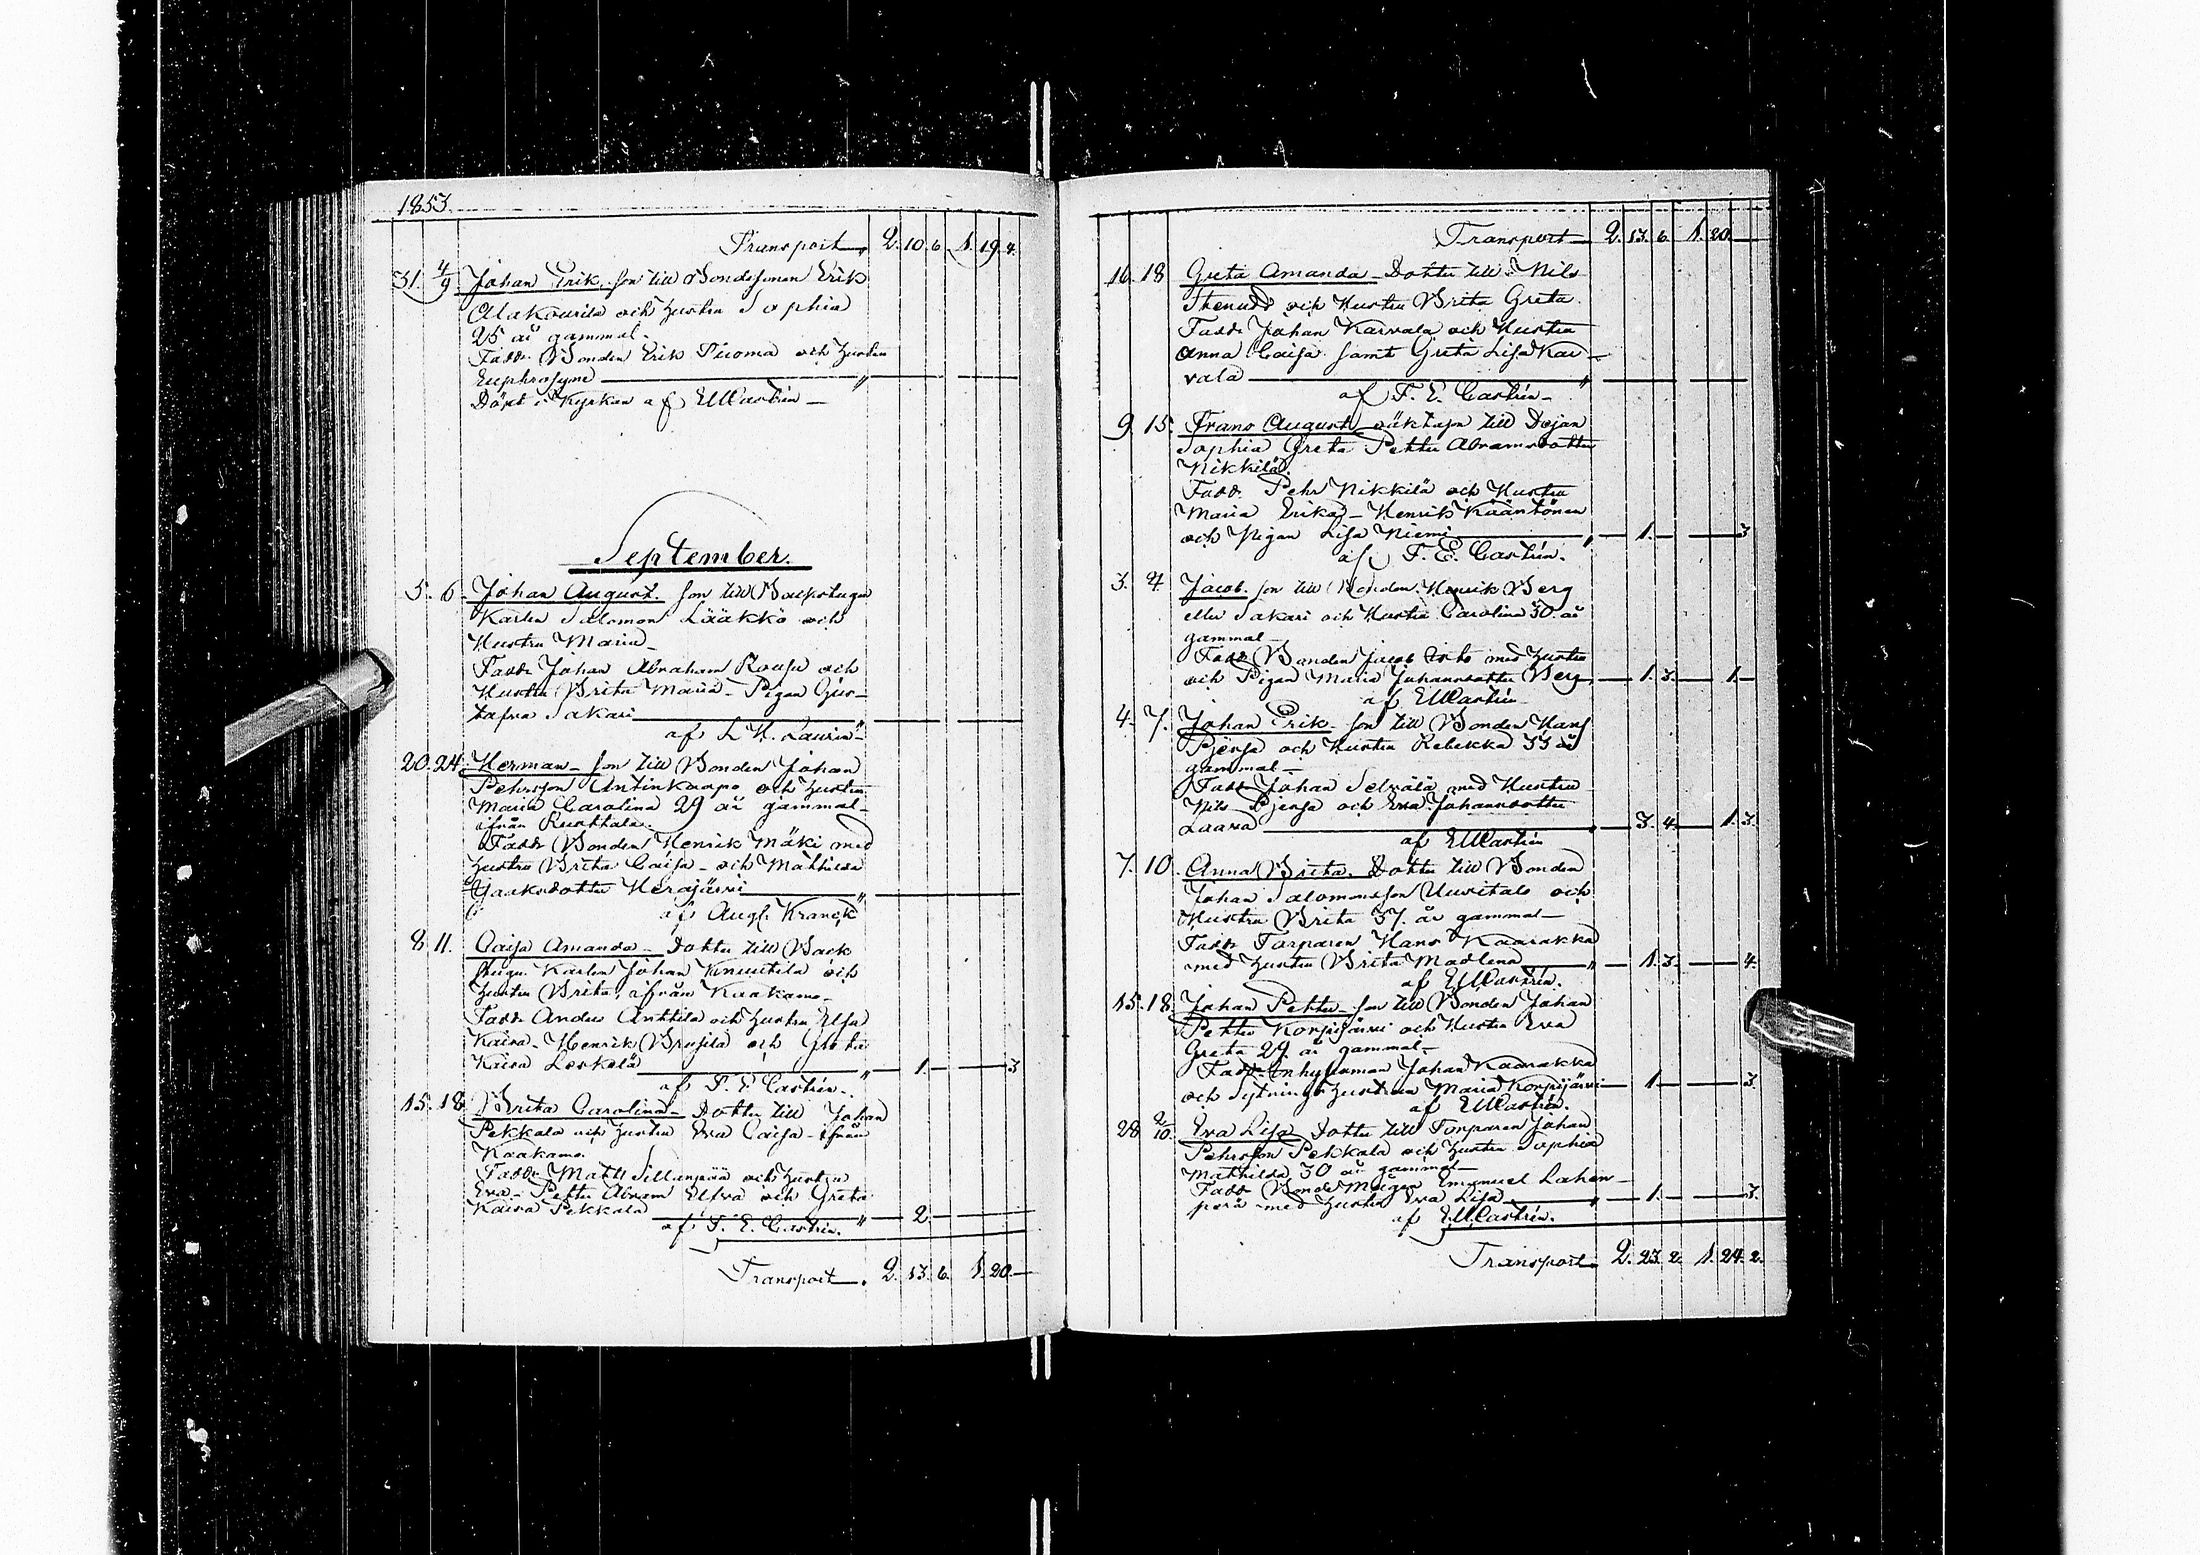 1853.
Transport 2. 10. 6. 1. 19. 4.
31. 4/9 Johan Erik, son till Bondesonen Erik
Alakourila och hustru Sophia
25 år gammal.
Fadd. Bonden Erik Tuoma och hustru
Euphrosyne "
Döpt i Kyrkan af EMCastrén
September.
5. 6 Johan August. son till Backstugu
Karlen Salomon Lääkkö och
Hustru Maria
Fadd. Johan Abraham Rousu och
Hustru Brita Maria - Pigan Gus-
tafva Sakari "
af L. H. Laurin
20. 24. Herman - son till Bonden Johan
Pehrsson Antinkaapo och hustru
Maria Carolina 29 år gammal
ifrån Ruottala.
Fadd. Bonden Henrik Mäki med
hustru Brita Caisa - och Mathilda
Isaksdotter Herajärvi "
af Aug. Kranck
8. 11. Caisa Amanda - Dotter till Back
stugu Karlen Johan Knuutila och
hustru Brita, ifrån Kaakamo
Fadd. Anders Anttila och hustru Elsa
Kaisa - Henrik Brusila och Greta
Kaisa Leskelä " 1. 3
af F. E. Castrén.
15. 18. Brita Carolina - Dotter till Johan
Pekkala och hustru Eva Caisa - ifrån
Kaakamo.
Fadd. Matts Sillanpää och hustru
Eva - Petter Abram Elfva och Greta
Kaisa Pekkala " 2.
af F. E. Castrén.
Transport. 2. 13. 6. 1. 20.
Transport 2. 13. 6. 1. 20
16. 18 Greta Amanda - Dotter till Nils
Stenudd och Hustru Brita Greta
Fadd. Johan Karvala och Hustru
Anna Caisa samt Greta Lisa Kar-
vala "
af F. E. Castrén
9. 15. Frans August oäkta son till Dejan
Sophia Greta Petter Abramsdotter
Nikkilä.
Fadd. Pehr Nikkilä och Hustru
Maria Erika - Henrik Kääntönen
och Pigan Lisa Niemi " 1. 3
af F. E. Castrén.
3. 4. Jacob. son till Bonden Henrik Berg
eller Sakari och Hustru Carolina 30 år
gammal
Fadd. Bonden Jacob med hustru
och Pigan Maria Johansdotter Berg 1. 3. 1.
af EMCastrén
4. 7. Johan Erik - son till Bonden Hans
Pjersa och Hustru Rebekka 33 år
gammal
Fadd. Johan Selvälä med Hustru
Nils Pjersa och Eva Johansdotter
Laara 3. 4. 1. 3.
af EMCastrén
7. 10. Anna Brita. Dotter till Bonden
Johan Salomonsson Uusitalo och
Hustru Brita 37 år gammal
Fadd. Torparen Hans Kaarakka
med hustru Brita Madlena " 1. 3. 4.
af EMCastrén.
15. 18. Johan Petter - son till Bonden Johan
Petter Korpijärvi och Hustru Eva
Greta 29 år gammal
Fadd. Inhysman Johan Kaarakka
och Sytnings hustrun Maria Korpijärvi 1 3.
af EMCastrén.
28 2/10. Eva Lisa Dotter till Torparen Johan
Pehrsson Pekkala och hustru Sophia
Mathilda 30 år gammal
Fadd. Bonde Mågen Emanuel Lahen-
perä med hustru Eva Lisa " 1. 3.
af EMCastrén.
Transport 2. 23. 2. 1. 24. 2.